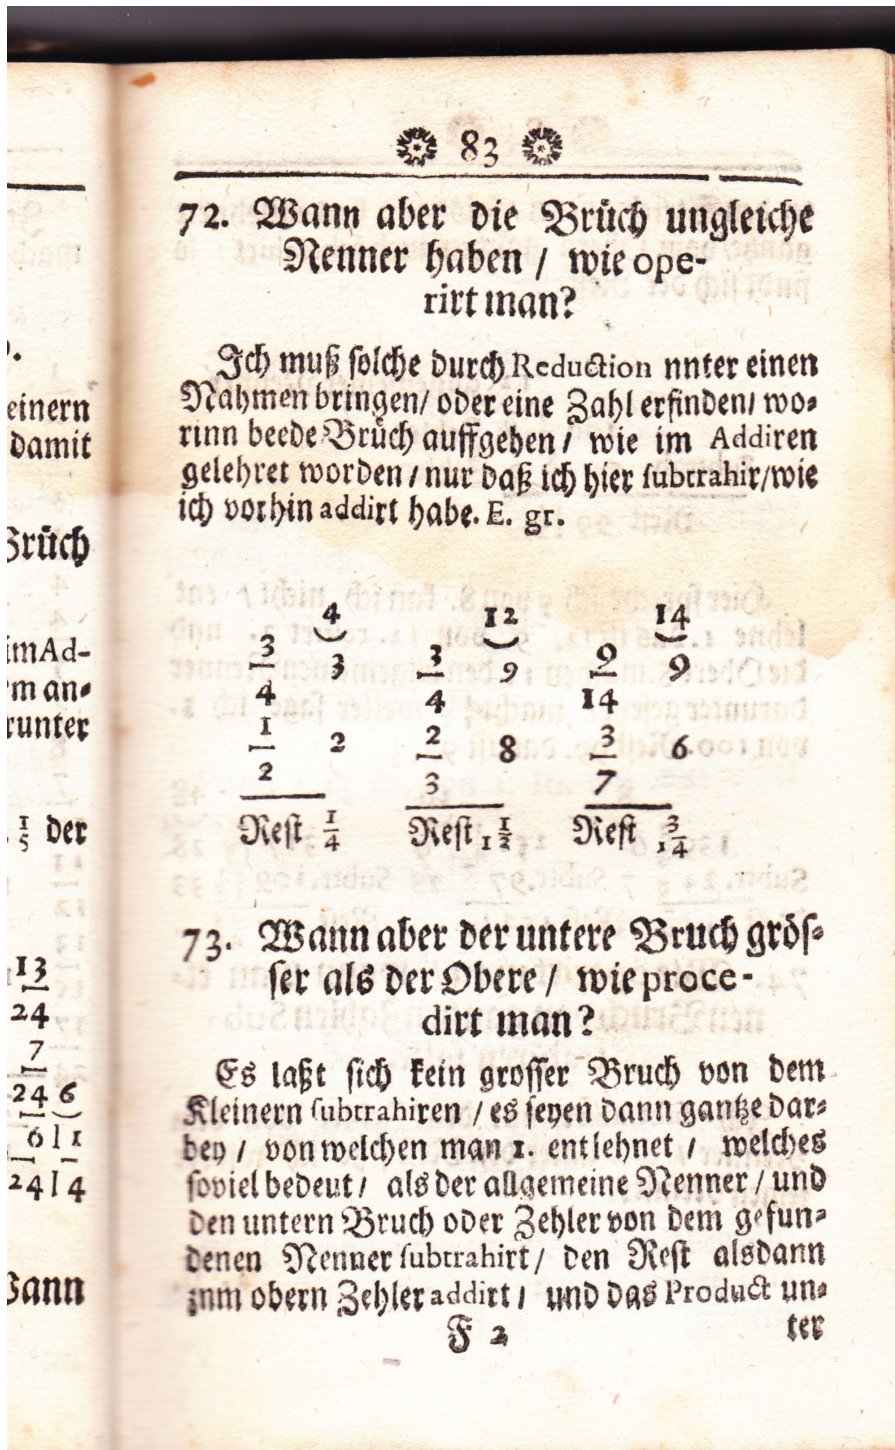 .
einern
damit
Brüch
im Ad-
m an-
runter
1/5 der
13
24
7
24 6
6 | 1
24 | 4
Wann
83
72. Wann aber die Brüch ungleiche
Nenner haben / wie ope-
rirt man?
Ich muß solche durch Reduction nnter einen
Nahmen bringen/ oder eine Zahl erfinden/ wo-
rinn beede Brüch auffgehen / wie im Addiren
gelehret worden / nur daß ich hier subtrahir/wie
ich vorhin addirt habe. E. gr.
4 12 14
3/4 3 3/4 9 9/14 9
1/2 2 2/3 8 3/7 6
Rest 1/4 Rest 1/12 Rest 3/14
73. Wann aber der untere Bruch grös-
ser als der Obere / wie proce-
dirt man?
Es laßt sich kein grosser Bruch von dem
Kleinern subtrahiren / es seyen dann gantze dar-
bey / von welchen man 1. entlehnet / welches
soviel bedeut / als der allgemeine Nenner / und
den untern Bruch oder Zehler von dem gefun-
denen Nenner subtrahirt / den Rest alsdann
znm obern Zehler addirt / und das Product un-
F 2 ter